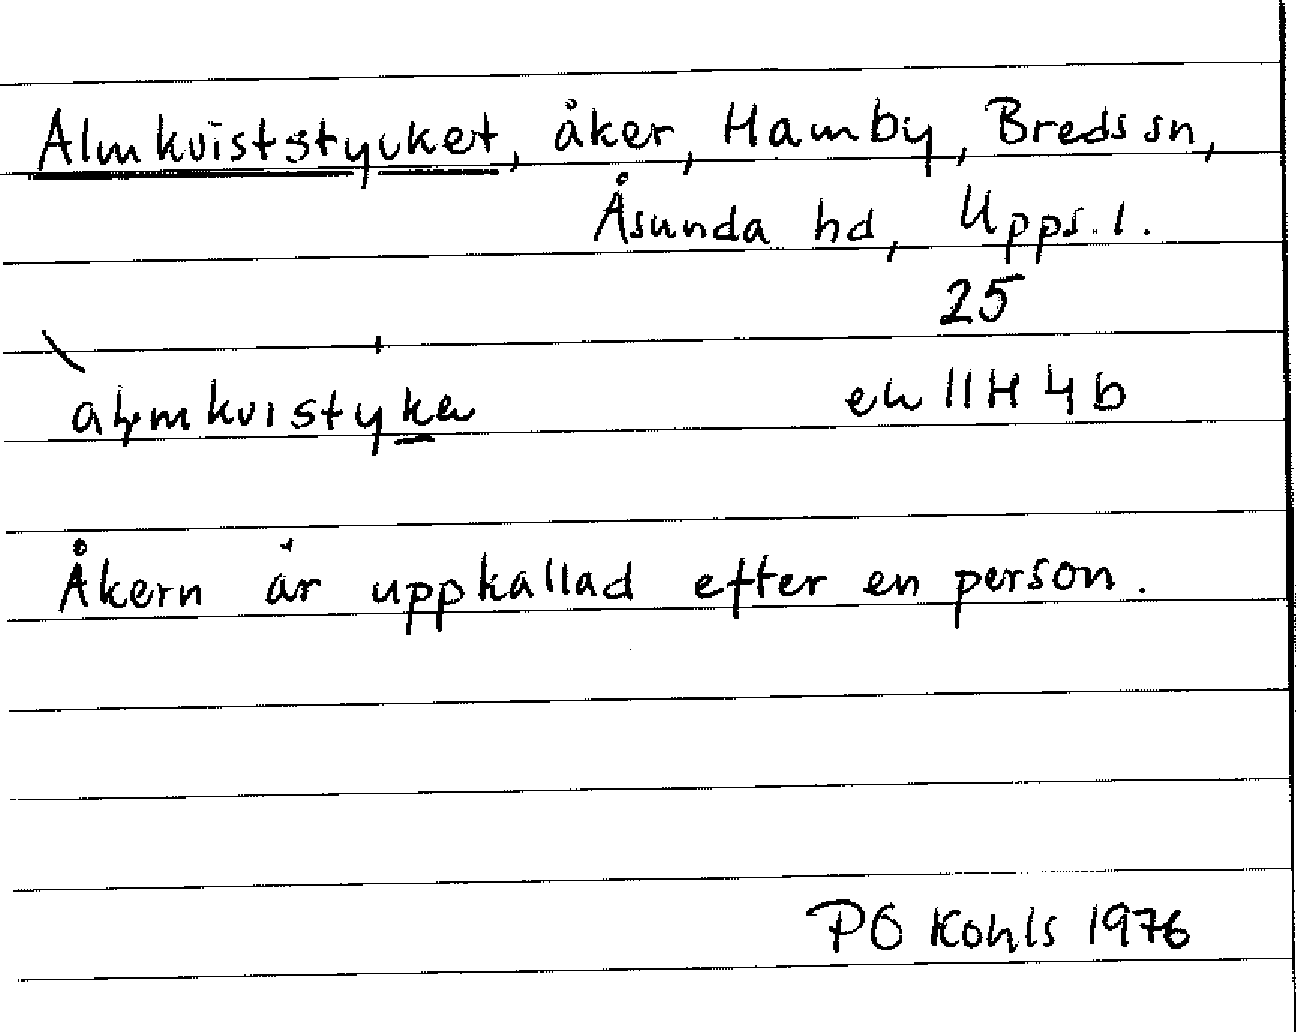 Almkviststycket, åker, Hamby, Breds sn,
Åsunda hd, Upps. l.
25
almkvistyka ek 11H 4b
Åkern är uppkallad efter en person.
PO Kohls 1976